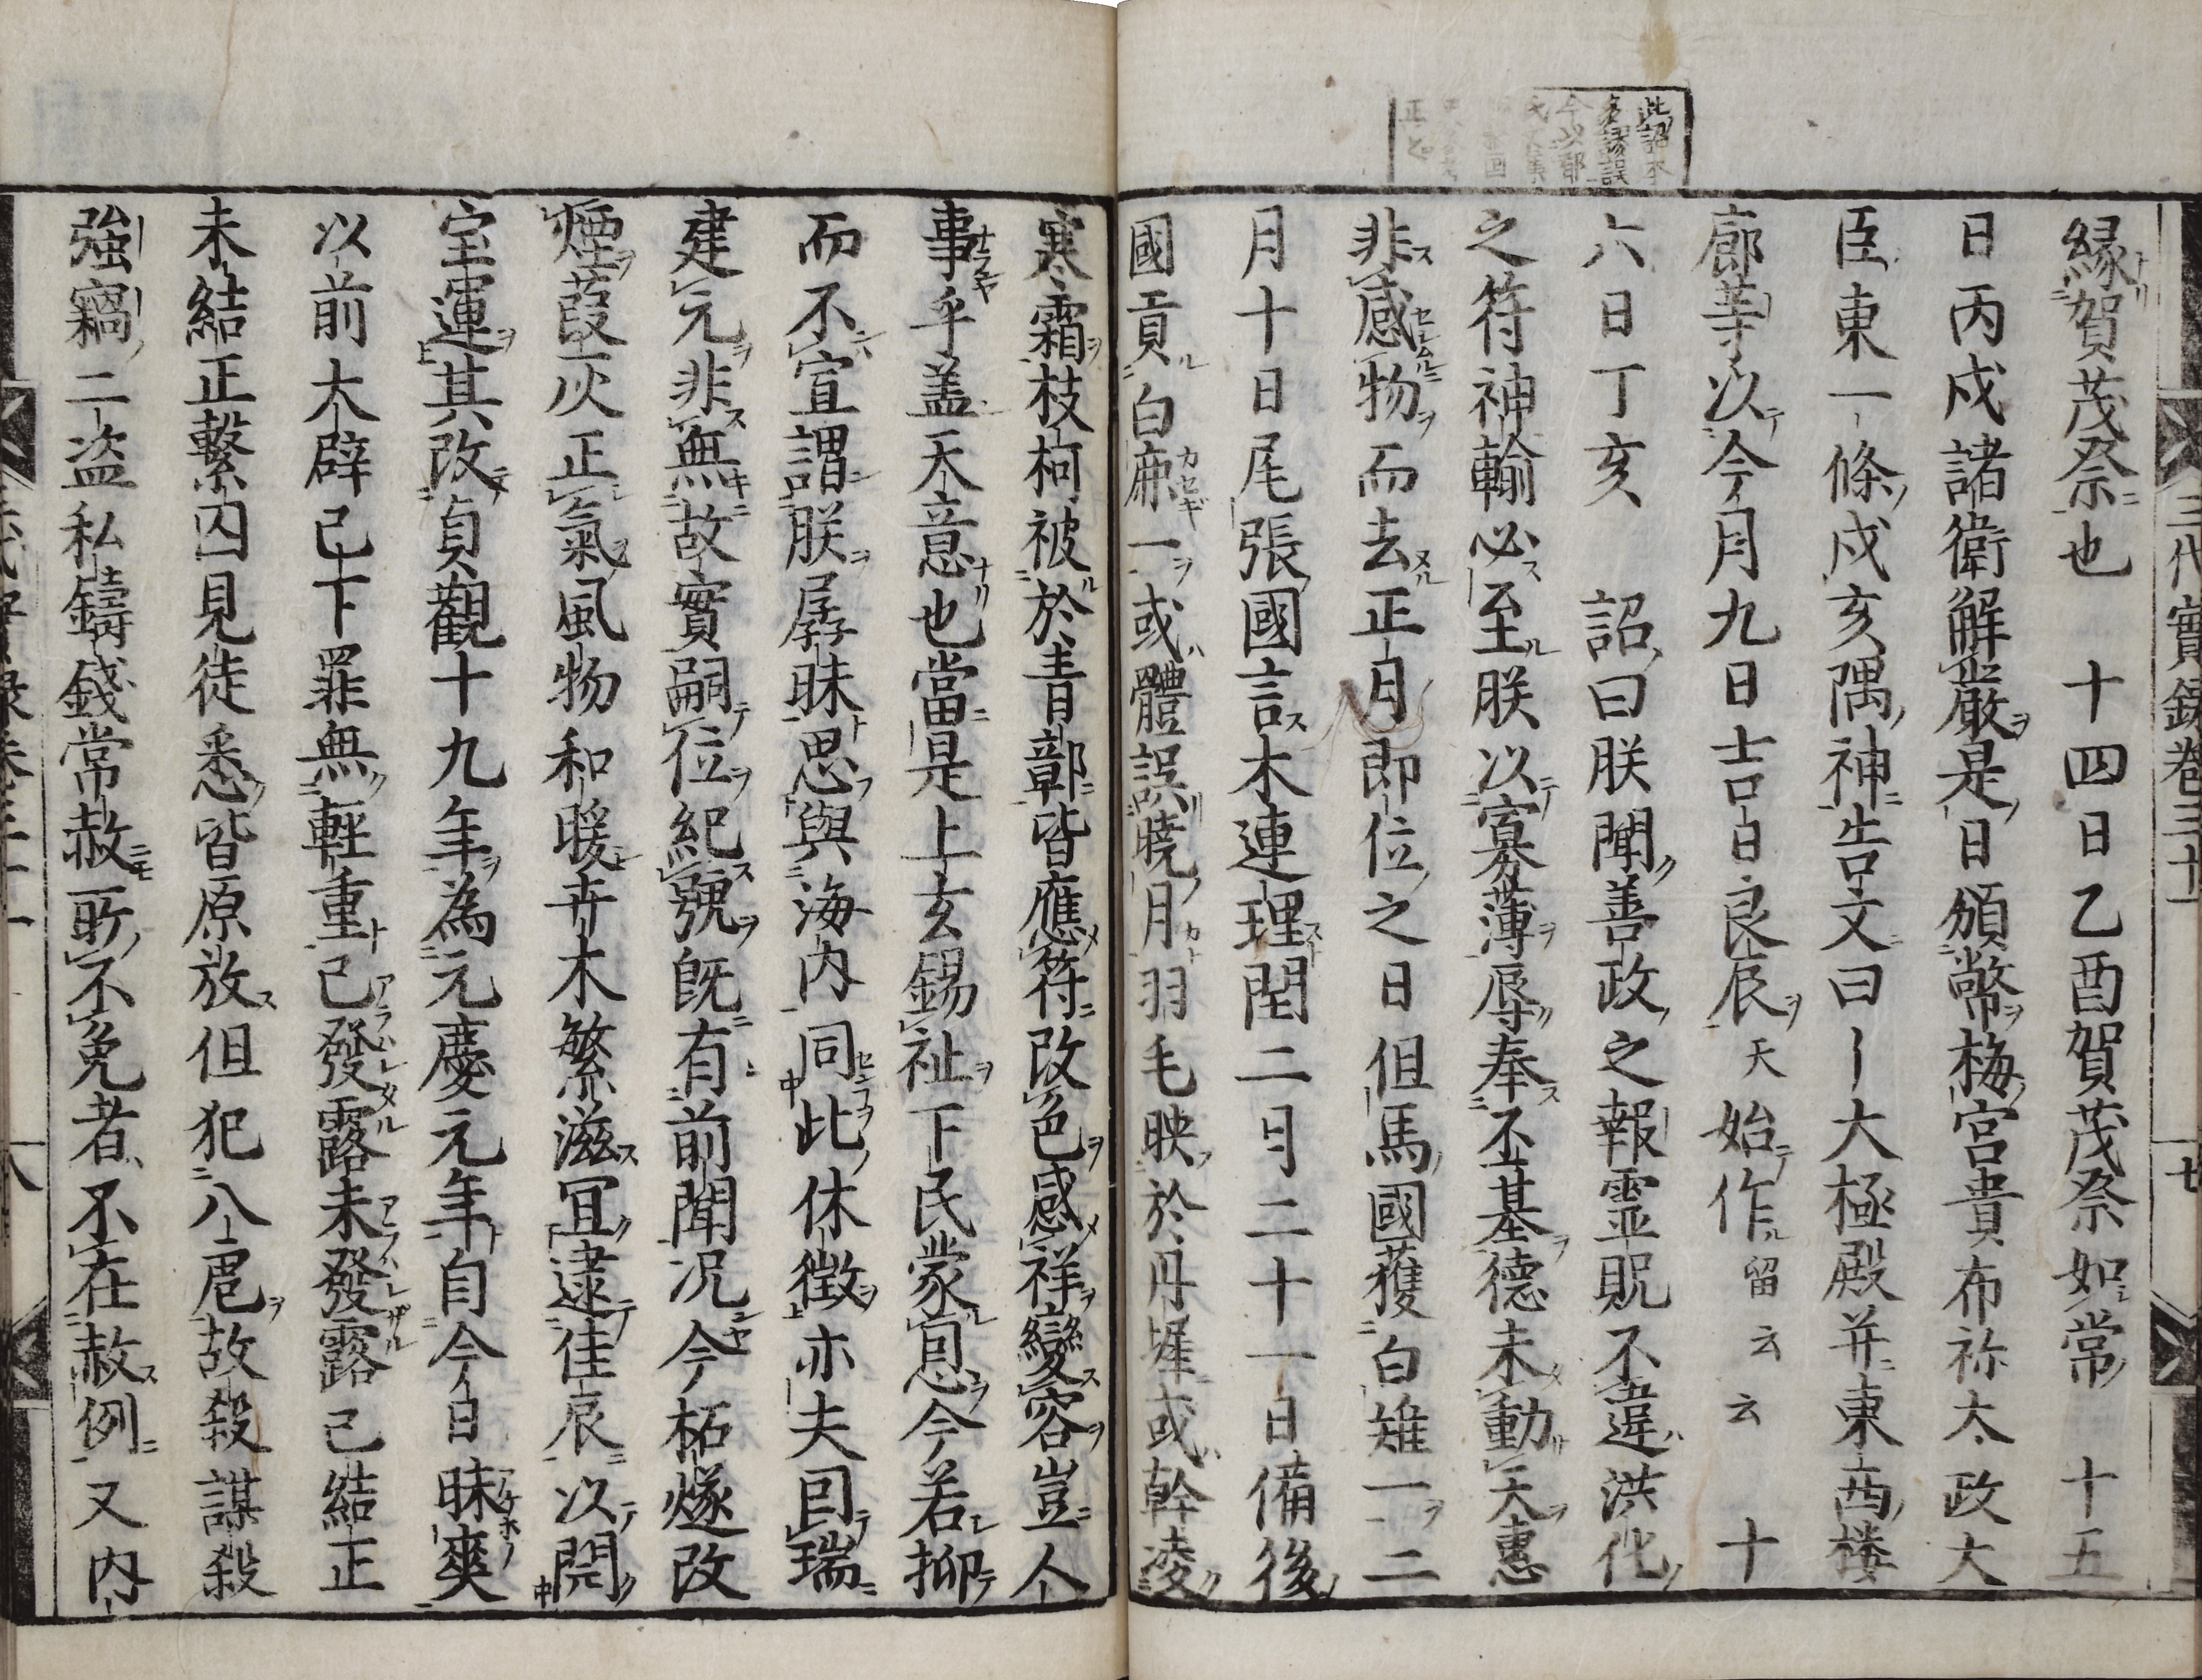 三代實録卷三十一
七
此詔本
多謬誤
今以都
正也
縁賀茂祭也　十四日乙酉賀茂祭如常　十五
日丙戍諸衛解嚴是日頒幣梅宮貴布祢太政大
臣東一條戍亥隅神告文曰〡大極殿并東西楼
廊等以今月九日吉日良辰天始作留云云　十
六日丁亥　詔曰朕聞善政之報霊貺不違洪化
之符神輸必至朕以寡薄辱奉丕基德未動天惠
非感物而去正月即位之日但馬國獲白雉一二
月十日尾張國言木連理閏二月二十一日備後
國貢白鹿一或體誤曉月羽毛映於丹墀或幹凌
寒霜枝柯被於青鄣皆應符改色感祥變容豈人
事乎盖天意也當是上玄錫祉下民蒙息今若抑
而不宣謂朕孱昧思與海内同此休徴亦夫囙瑞
建元非無故實嗣位紀號既有前聞况今柘燧改
煙葭灰正氣風物和暖卉木繁滋冝逮佳辰以開
宝運其改貞觀十九年為元慶元年自今日昧爽
以前大辟已下罪無輕重已發露未發露已結正
未結正繫囚見徒悉皆原放但犯八虐故殺謀殺
強竊二盗私鑄錢常赦所不免者不在赦例又内